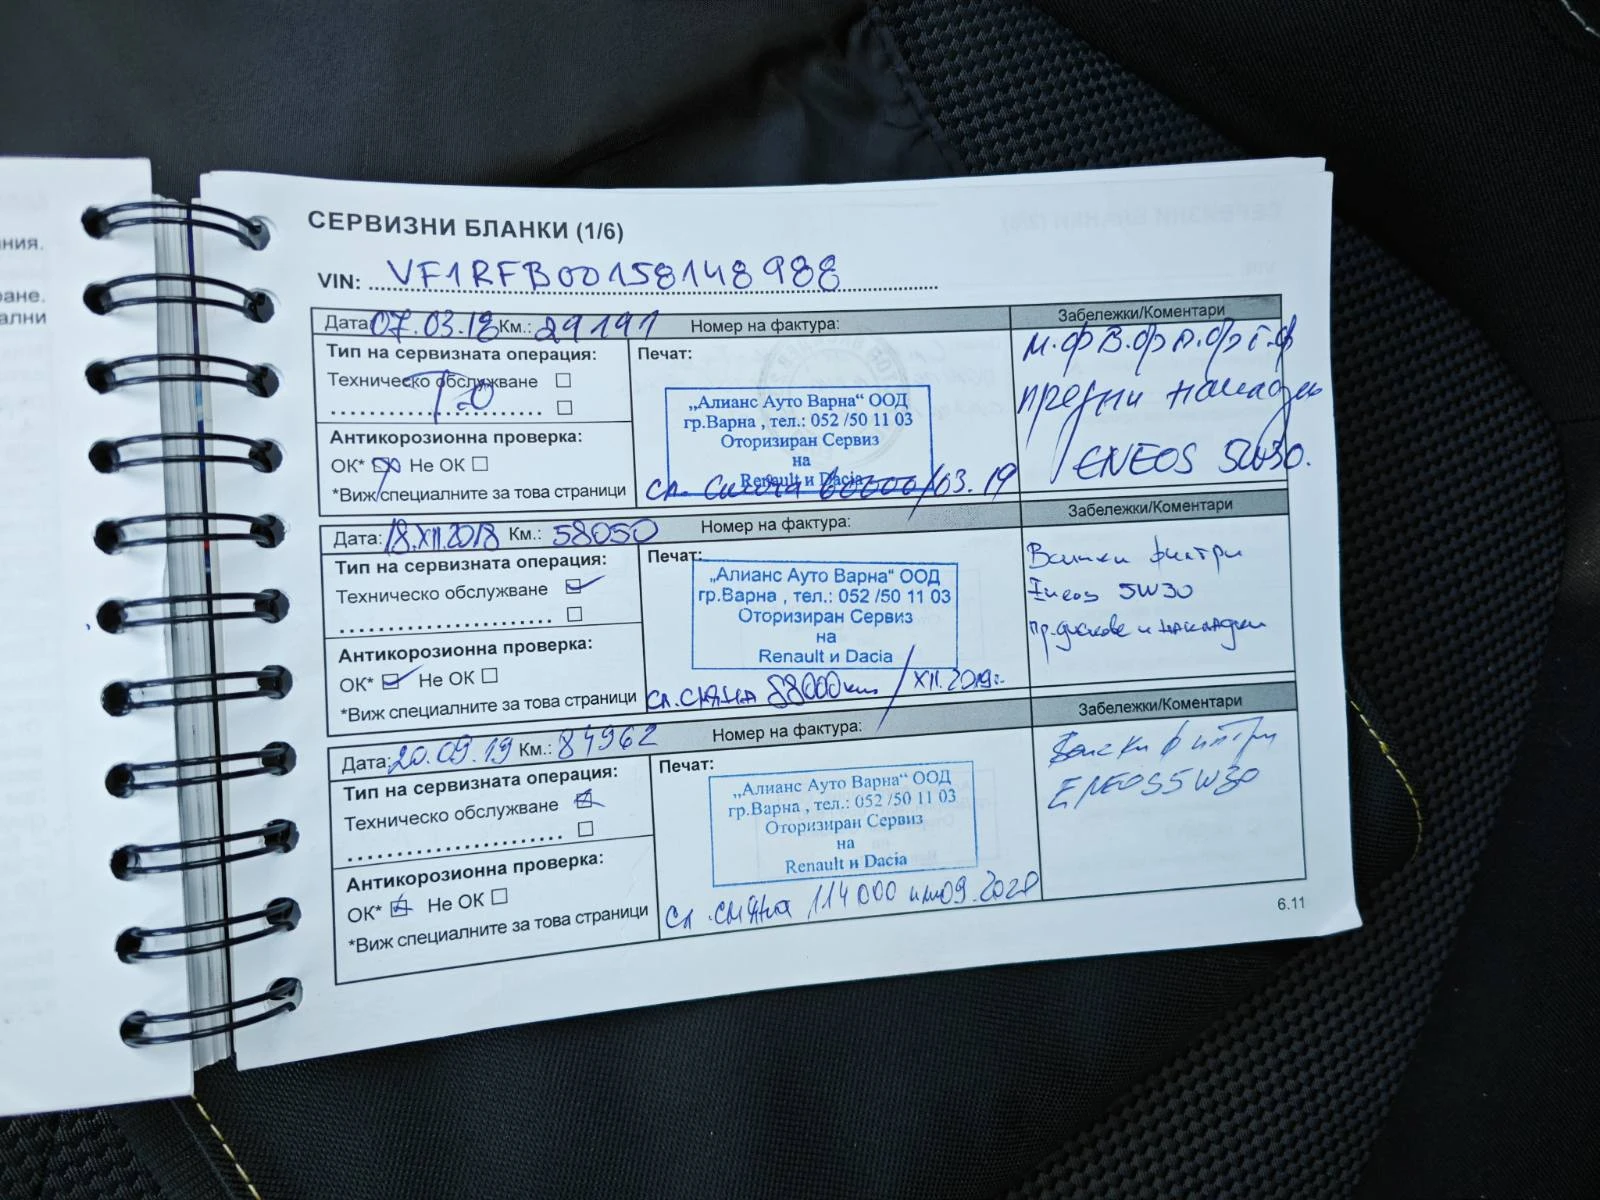 ния.
ане.
ални
СЕРВИЗНИ БЛАНКИ (1/6)
VIN: VF1RFB00158148988
Дата: 07.03.18 Км.: 29191 Номер на фактура: Забележки/Коментари
Тип на сервизната операция:
Техническо обслужване
ТО
Антикорозионна проверка:
ОК* Не ОК
*Виж специалните за това страници
Печат:
„Алианс Ауто Варна“ ООД
гр.Варна , тел.: 052 /50 11 03
Оторизиран Сервиз
на
Renault и Dacia
сл. смяна 60000/03.19
м.ф В.ф П.ф Г.ф
предни накладки
ENEOS 5W30.
Дата: 18.XII.2018 Км.: 58050 Номер на фактура: Забележки/Коментари
Тип на сервизната операция:
Техническо обслужване
Антикорозионна проверка:
ОК* Не ОК
*Виж специалните за това страници
Печат:
„Алианс Ауто Варна“ ООД
гр.Варна , тел.: 052 /50 11 03
Оторизиран Сервиз
на
Renault и Dacia
сл. смяна 88000 km / XII.2019г.
Всички филтри
Eneos 5W30
пр. дискове и накладки
Дата: 20.09.19 Км.: 84962 Номер на фактура: Забележки/Коментари
Тип на сервизната операция:
Техническо обслужване
Антикорозионна проверка:
ОК* Не ОК
*Виж специалните за това страници
Печат:
„Алианс Ауто Варна“ ООД
гр.Варна , тел.: 052 /50 11 03
Оторизиран Сервиз
на
Renault и Dacia
сл. смяна 114000 09.2020
Всички филтри
ENEOS 5W30
6.11